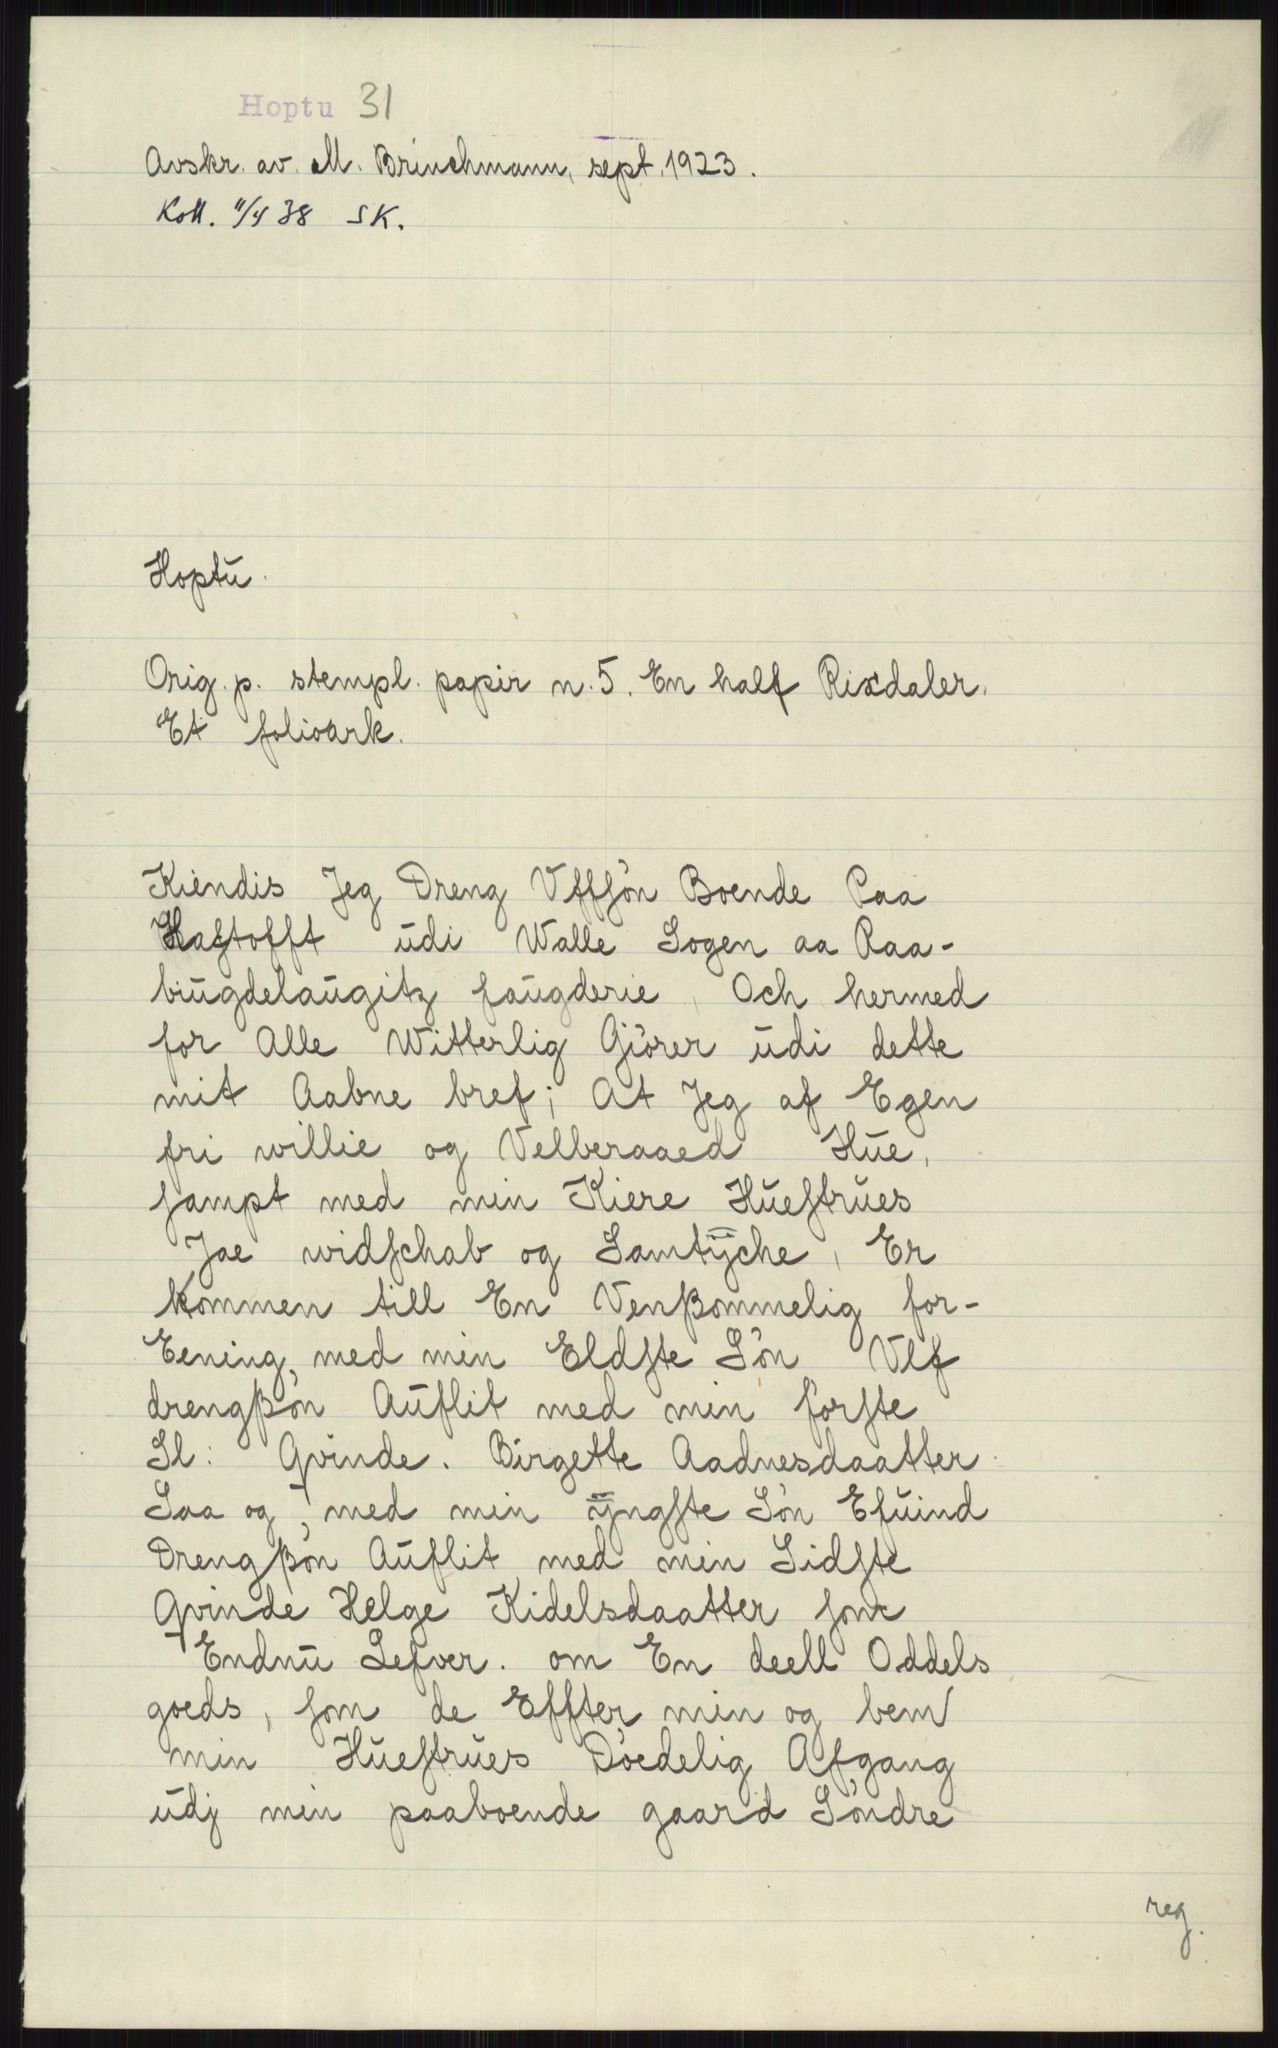 Hoptu 31
Avskr. av. M. Brinchmann, sept. 1923.
Koll. 11/4 38 SK.
Hoptu.
Orig. p. stempl. papir n. 5. En half Rixdaler.
Et folioark.
Kiendis Jeg Dreng Vffſøn Boende Paa
Haftofft udi Walle Sogen aa Raa-
biugdelaugitz faugderie, Och hermed
for Alle Witterlig Giører udi dette
mit Aabne bref; At Jeg af Egen
fri willie og Velberaaed Hue,
ſampt med min Kiere Hueſtrues
Jae widſchab og Samtÿche, Er
kommen till En Venßommelig for-
Eening, med min Eldſte Søn Vlf
drengßøn Auflit med min førſte
Sl: Qvinde. Birgette Aadnesdaatter
Saa og, med min ÿngſte Søn Efuind
Drengßøn Auflit med min Sidſte
Qvinde Helge Kidelsdaatter ſom
Endnu Lefver. om En deell Oddels
goeds, ſom de Effter min og bem
min Hueſtrues Døedelig Afgang
udj min paaboende gaard Søndre
reg.